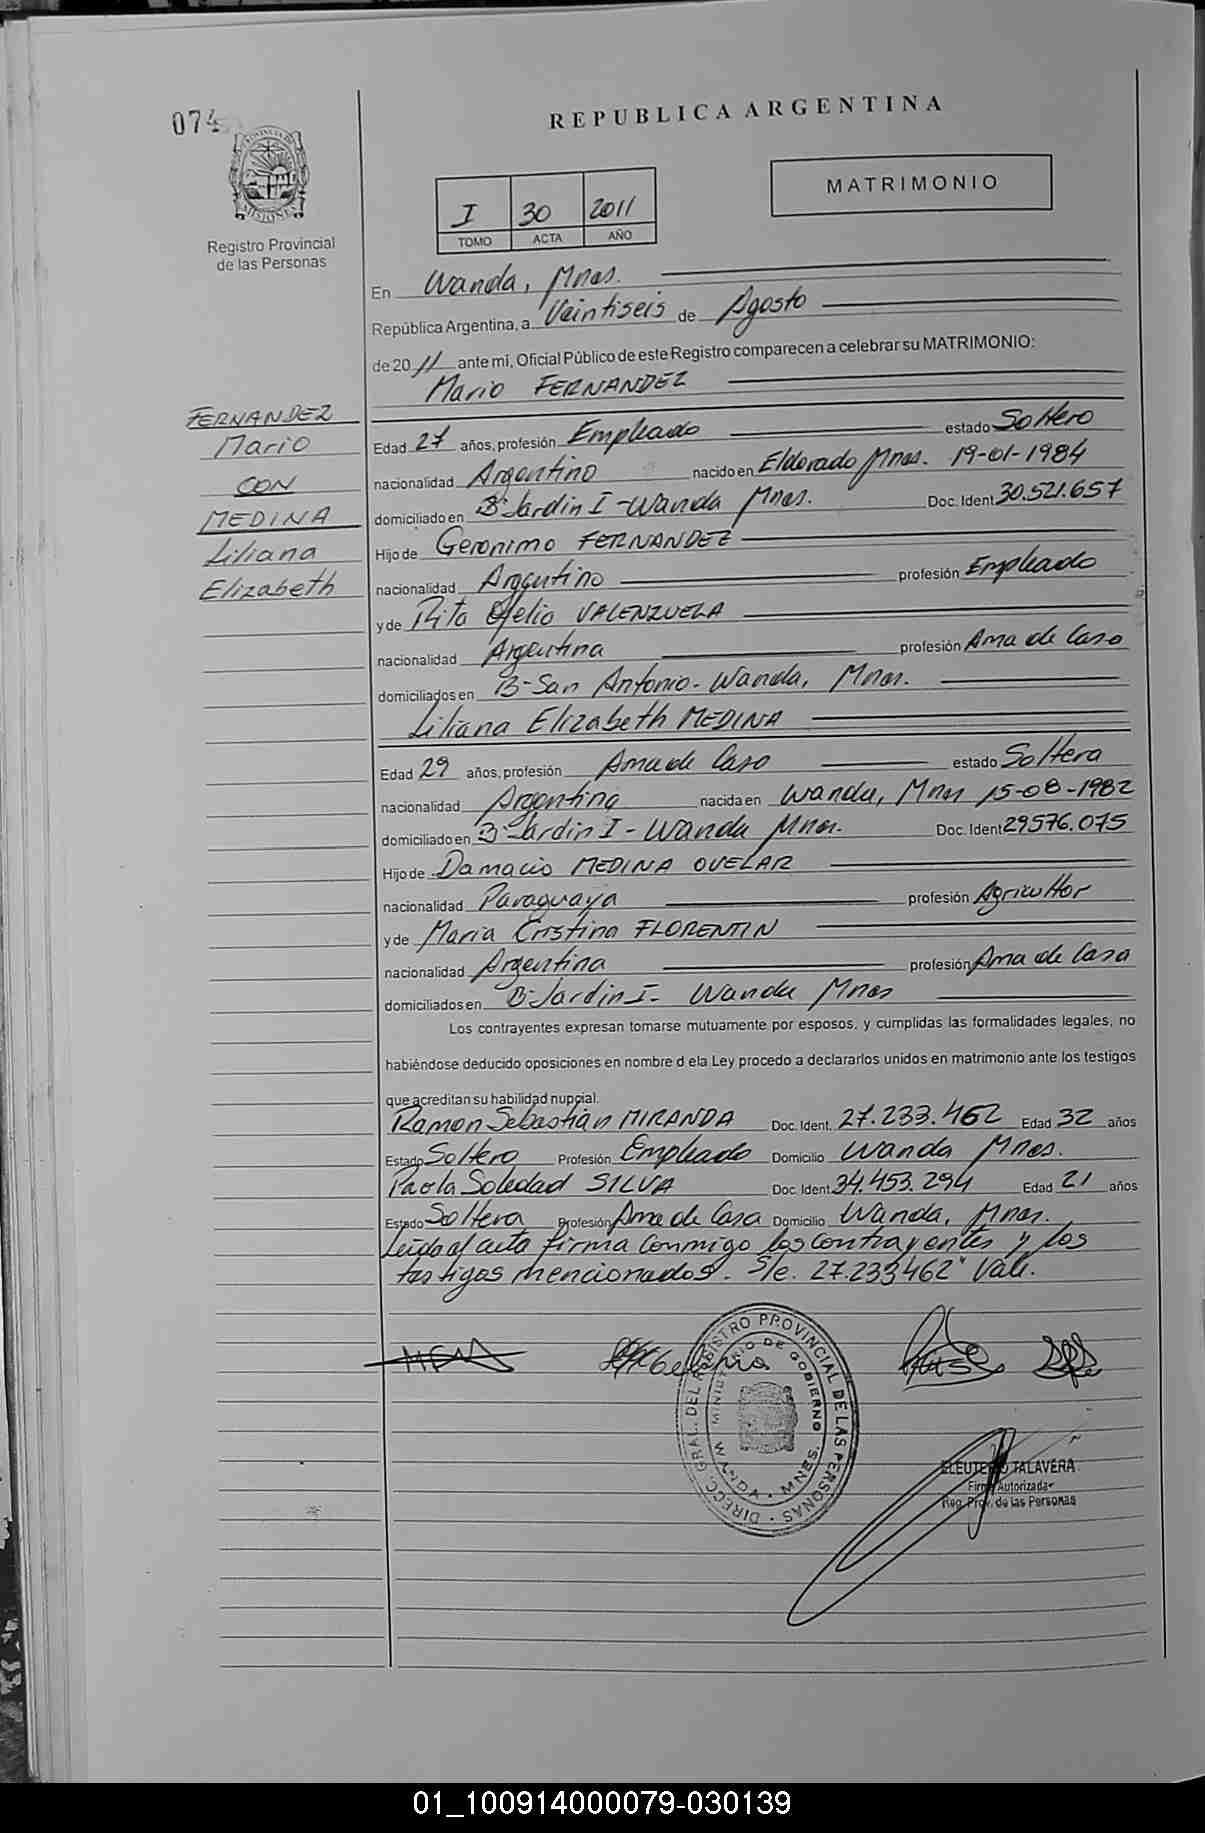 074
PROVINCIA DE
MISIONES
Registro Provincial
de las Personas
REPUBLICA ARGENTINA
MATRIMONIO
I 30 2011
TOMO ACTA AÑO
En Wanda, Mnes.
República Argentina, a Veintiseis de Agosto
de 2011 ante mi, Oficial Público de este Registro comparecen a celebrar su MATRIMONIO:
Mario FERNANDEZ
FERNANDEZ
Mario
CON
MEDINA
Liliana
Elizabeth
Edad 27 años, profesión Empleado estado Soltero
nacionalidad Argentino nacido en Eldorado Mnes. 19-01-1984
domiciliado en B° Jardin I - Wanda Mnes. Doc. Ident 30.521.657
Hijo de Geronimo FERNANDEZ
nacionalidad Argentino profesión Empleado
y de Rita Ofelia VALENZUELA
nacionalidad Argentina profesión Ama de Casa
domiciliados en B- San Antonio - Wanda, Mnes.
Liliana Elizabeth MEDINA
Edad 29 años, profesión Ama de Casa estado Soltera
nacionalidad Argentina nacida en Wanda, Mnes 15-08-1982
domiciliado en B° Jardin I - Wanda Mnes. Doc. Ident 29576.075
Hijo de Damacio MEDINA OVELAR
nacionalidad Paraguaya profesión Agricultor
y de Maria Cristina FLORENTIN
nacionalidad Argentina profesión Ama de Casa
domiciliados en B- Jardin I- Wanda Mnes
Los contrayentes expresan tomarse mutuamente por esposos, y cumplidas las formalidades legales, no
habiéndose deducido oposiciones en nombre d ela Ley procedo a declararlos unidos en matrimonio ante los testigos
que acreditan su habilidad nupcial.
Ramon Sebastián MIRANDA Doc. Ident. 27.233.462 Edad 32 años
Estado Soltero Profesión Empleado Domicilio Wanda Mnes.
Paola Soledad SILVA Doc. Ident 34.453.294 Edad 21 años
Estado Soltera Profesión Ama de Casa Domicilio Wanda, Mnes.
Leido el acta firma conmigo los contrayentes y los
testigos mencionados. S/e. 27.233462" Vale.
DIRECC. GRAL. DEL REGISTRO PROVINCIAL DE LAS PERSONAS
MINISTERIO DE GOBIERNO
WANDA - MNES.
ELEUTERIO TALAVERA
Firma Autorizada
Reg. Prov. de las Personas
01_100914000079-030139